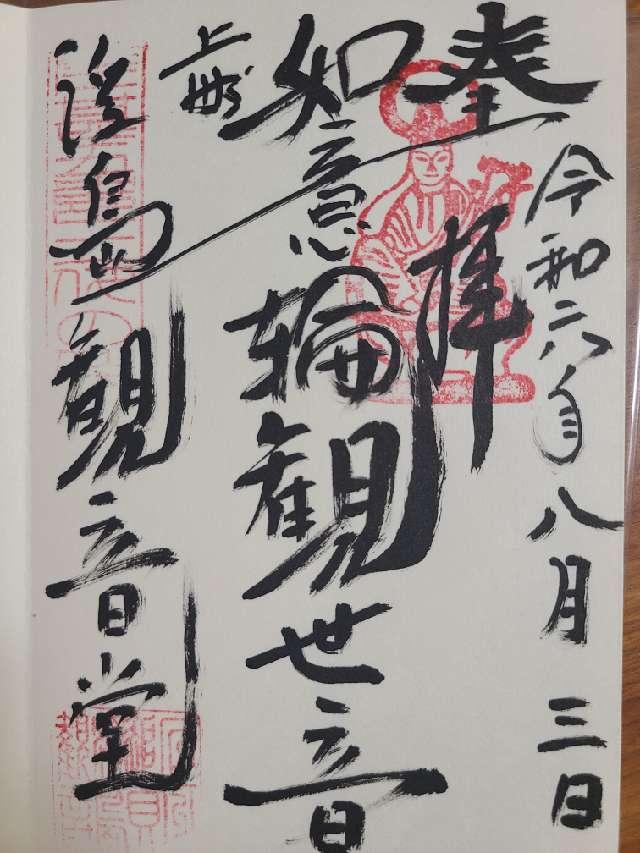 奉拝
令和六年八月三日
如意輪観世音
上州
浮島観音堂